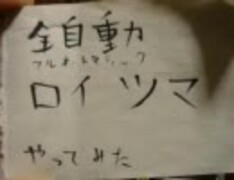 全自動
フルオートマチック
ロイツマ
やってみた